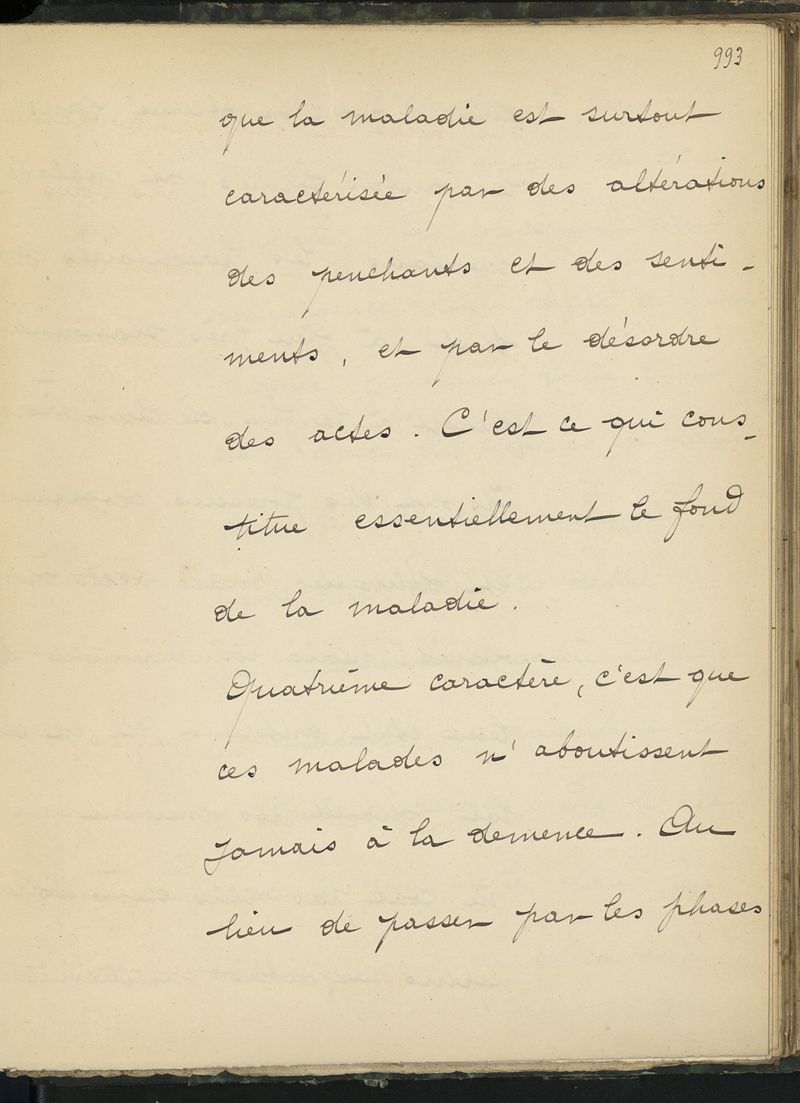 993
que la maladie est surtout
caractérisée par des altérations
des penchants et des senti-
ments, et par le désordre
des actes. C'est ce qui cons-
titue essentiellement le fond
de la maladie.
Quatrième caractère, c'est que
ces malades n'aboutissent
jamais à la demence. Au
lieu de passer par les phases